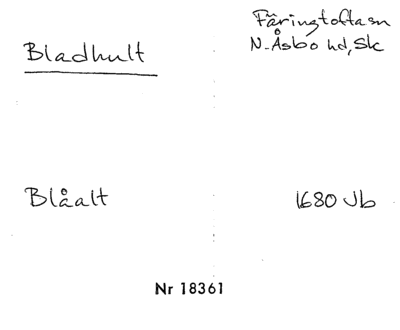 Bladhult
Färingtoftasn
N. Åsbo hd, Sk
Blåalt
1680 Jb
Nr 18361